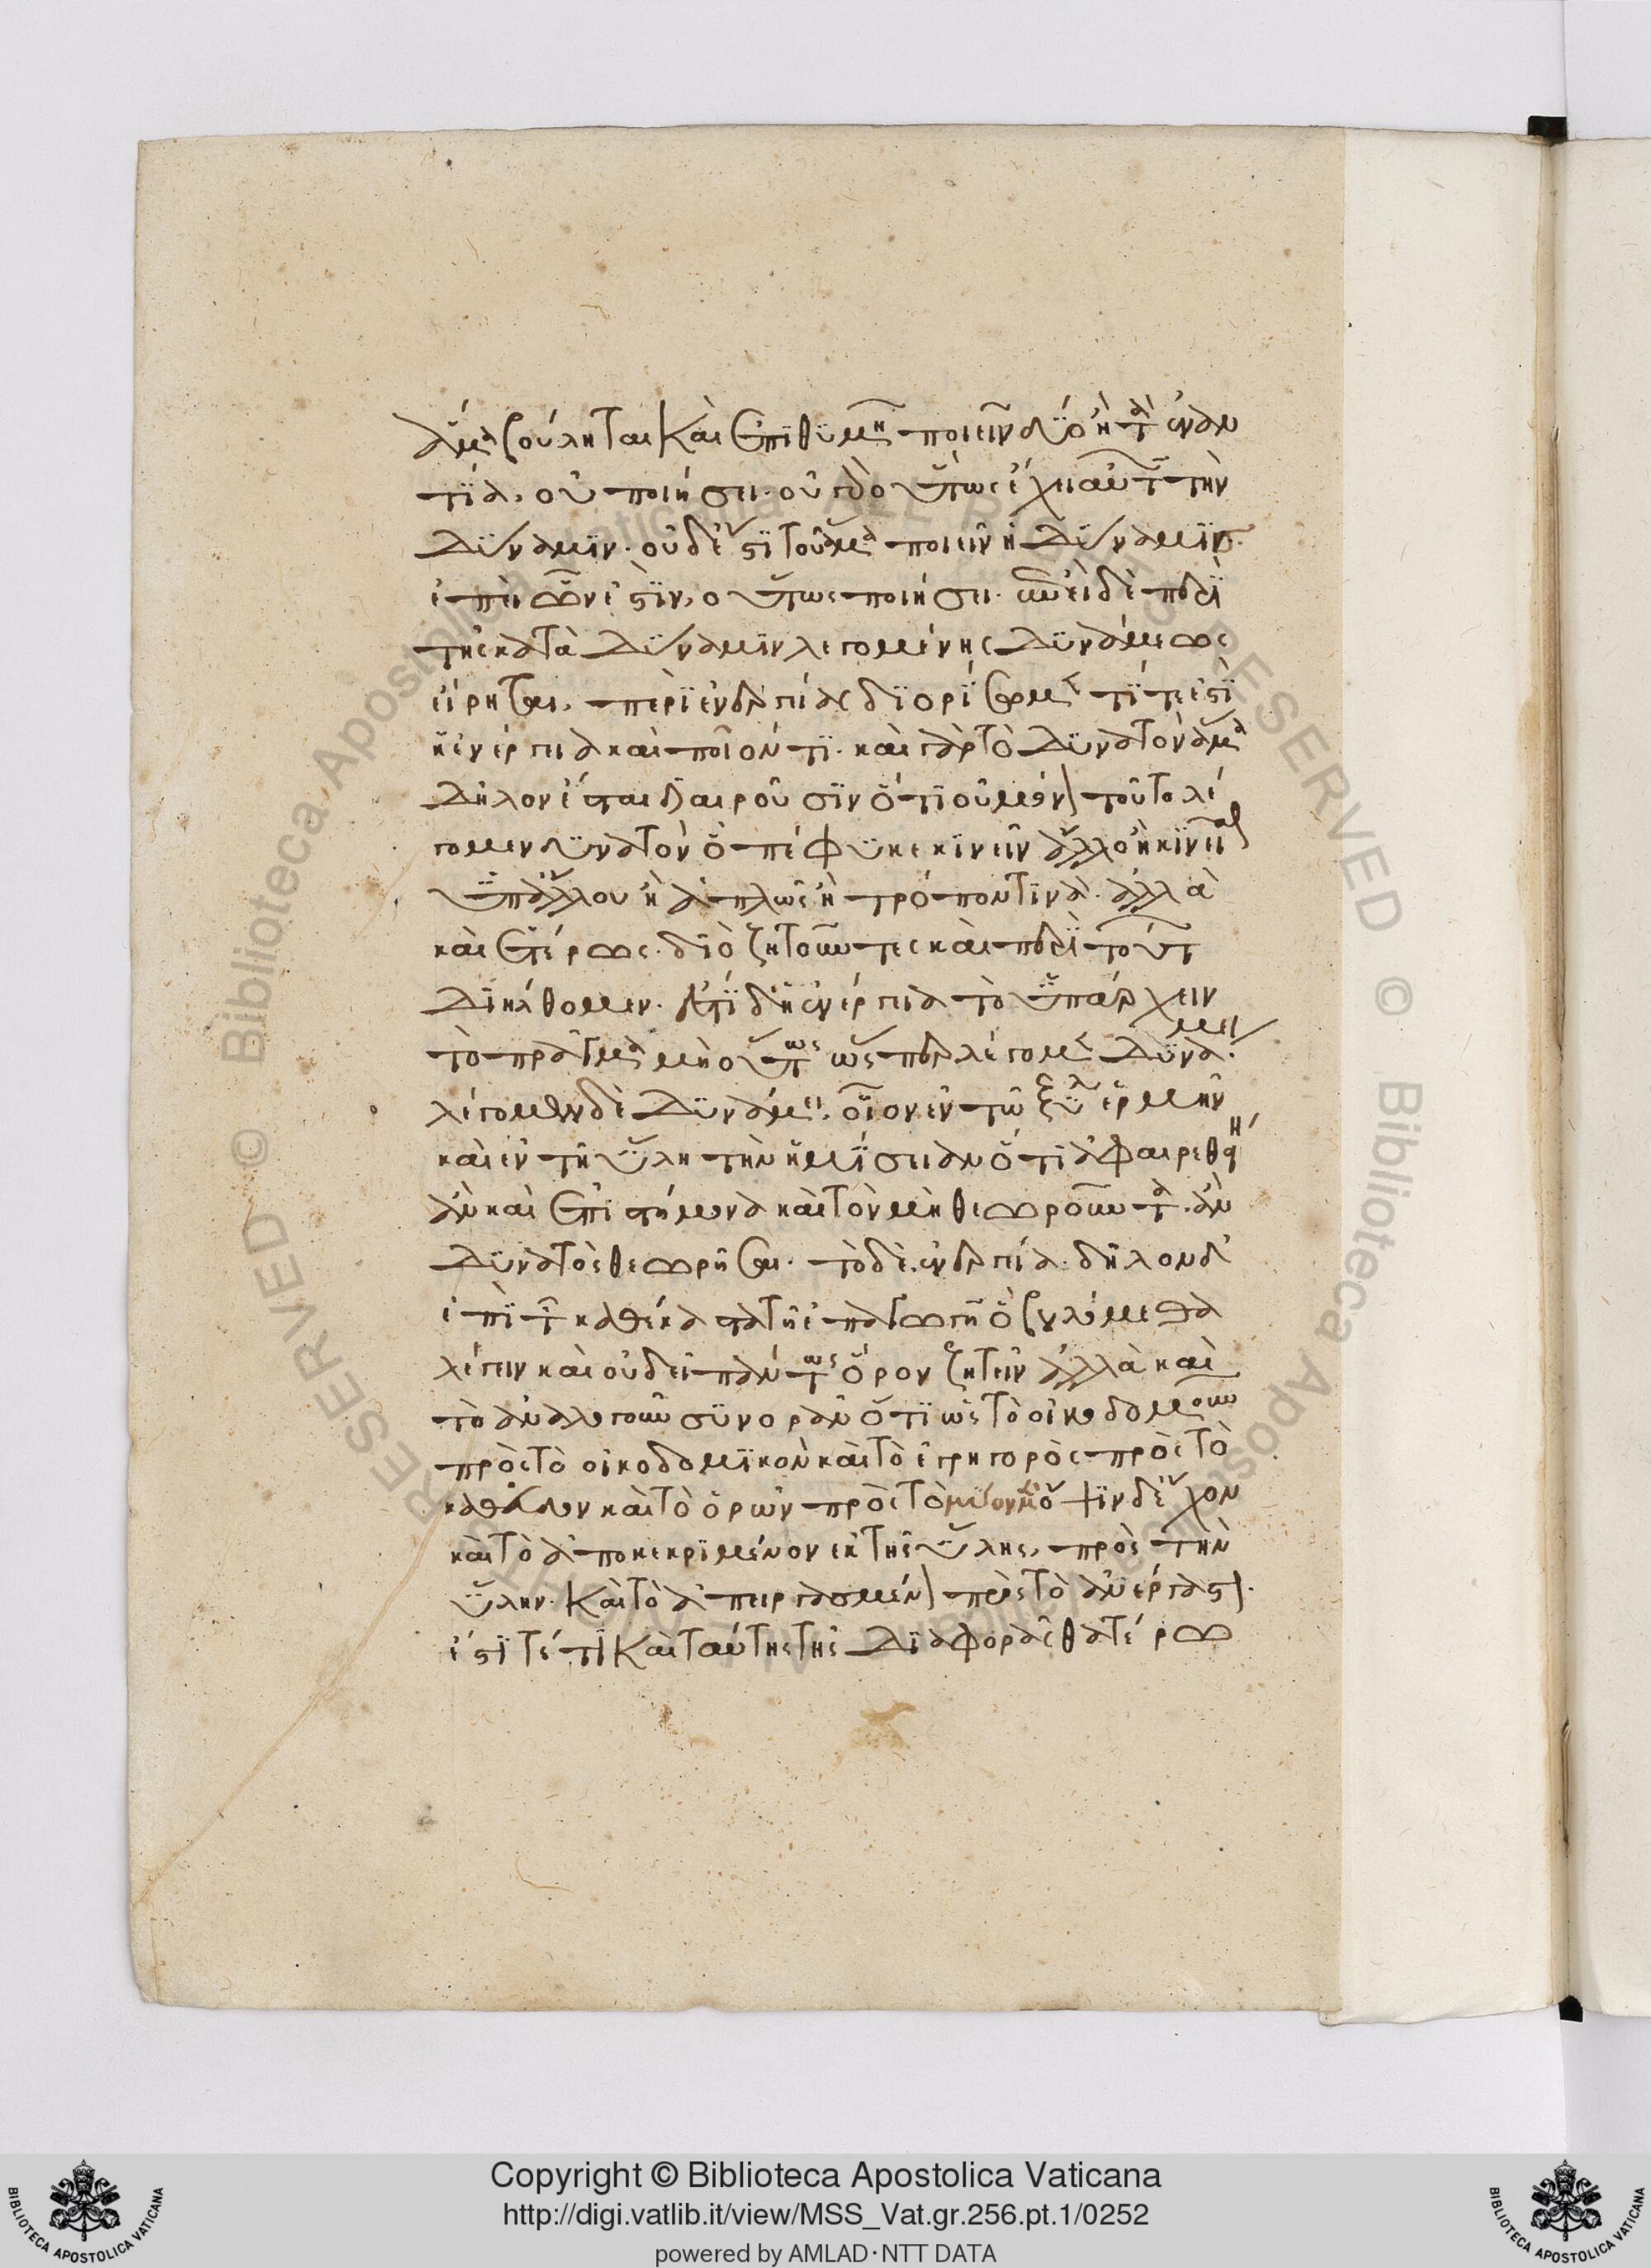 ἅμα βούληται καὶ ἐπιθυμῆ ποιεῖν δύο ἢ τὰ ἐναν
τία, οὐ ποιήσει. οὐ γὰρ οὕτως ἔχει αὐτῶν τὴν
δύναμιν. οὐδ' ἔστι τοῦ ἅμα ποιεῖν ἡ δύναμις.
ἐπεὶ ὧν ἐστιν, οὕτως ποιήσει. ἐπεὶ δὲ περὶ
τῆς κατὰ δύναμιν λεγομένης δυνάμεως
εἴρηται, περὶ ἐνεργείας διορίσωμεν τί τέ ἐστι
ἡ ἐνέργεια καὶ ποῖόν τι. καὶ γὰρ τὸ δυνατὸν ἅμα
δῆλον ἔσται διαιροῦσιν ὅτι οὐ μόνον τοῦτο λέ
γομεν δυνατὸν ὃ πέφυκε κινεῖν ἄλλο ἢ κινεῖσθαι
ὑπ' ἄλλου ἢ ἁπλῶς ἢ τρόπον τινά. ἀλλὰ
καὶ ἑτέρως. διὸ ζητοῦντες καὶ περὶ τούτων
διήλθομεν. ἔστι δ' ἡ ἐνέργεια τὸ ὑπάρχειν
τὸ πρᾶγμα μὴ οὕτως ὥσπερ λέγομεν δυνάμει.
λέγομεν δὲ δυνάμει, οἷον ἐν τῷ ξύλῳ ἑρμῆν
καὶ ἐν τῇ ὅλῃ τὴν ἡμίσειαν ὅτι ἀφαιρεθείη
ἂν καὶ ἐπιστήμονα καὶ τὸν μὴ θεωροῦντα. ἂν
δυνατὸς θεωρῆσαι. τὸ δὲ ἐνεργείᾳ. δῆλον δ'
ἐπὶ τῶν καθέκαστα τῇ ἐπαγωγῇ ὃ βουλόμεθα
λέγειν καὶ οὐ δεῖ παντὸς ὅρον ζητεῖν ἀλλὰ καὶ
τὸ ἀνάλογον συνορᾶν ὅτι ὡς τὸ οἰκοδομοῦν
πρὸς τὸ οἰκοδομικὸν καὶ τὸ ἐγρηγορὸς πρὸς τὸ
καθεῦδον καὶ τὸ ὁρῶν πρὸς τὸ μύον μὲν ὄψιν δὲ ἔχον
καὶ τὸ ἀποκεκριμένον ἐκ τῆς ὕλης, πρὸς τὴν
ὕλην. καὶ τὸ ἀπειργασμένον πρὸς τὸ ἀνέργαστον.
ταύτης τῆς διαφορᾶς θατέρῳ